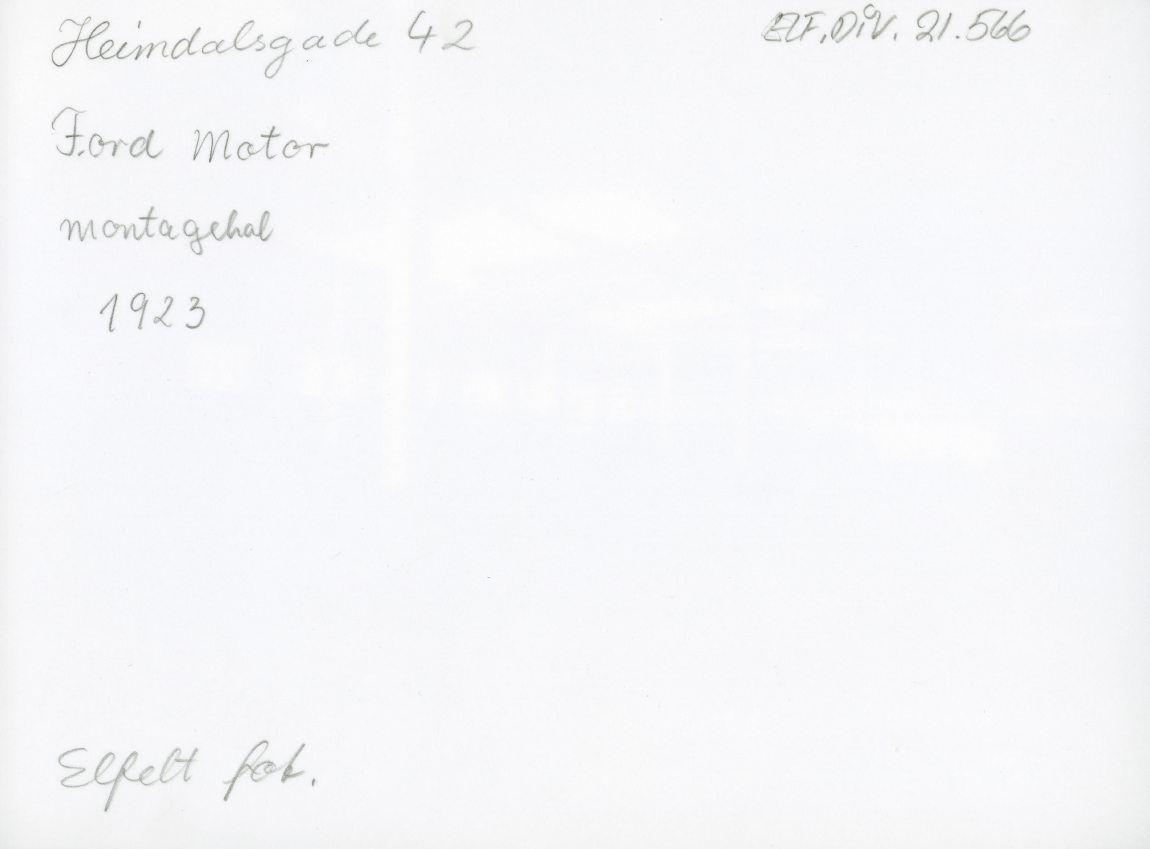 Heimdalsgade 42
ELF. DiV. 21.566
Ford Motor
montagehal
1923
Elfelt fot.